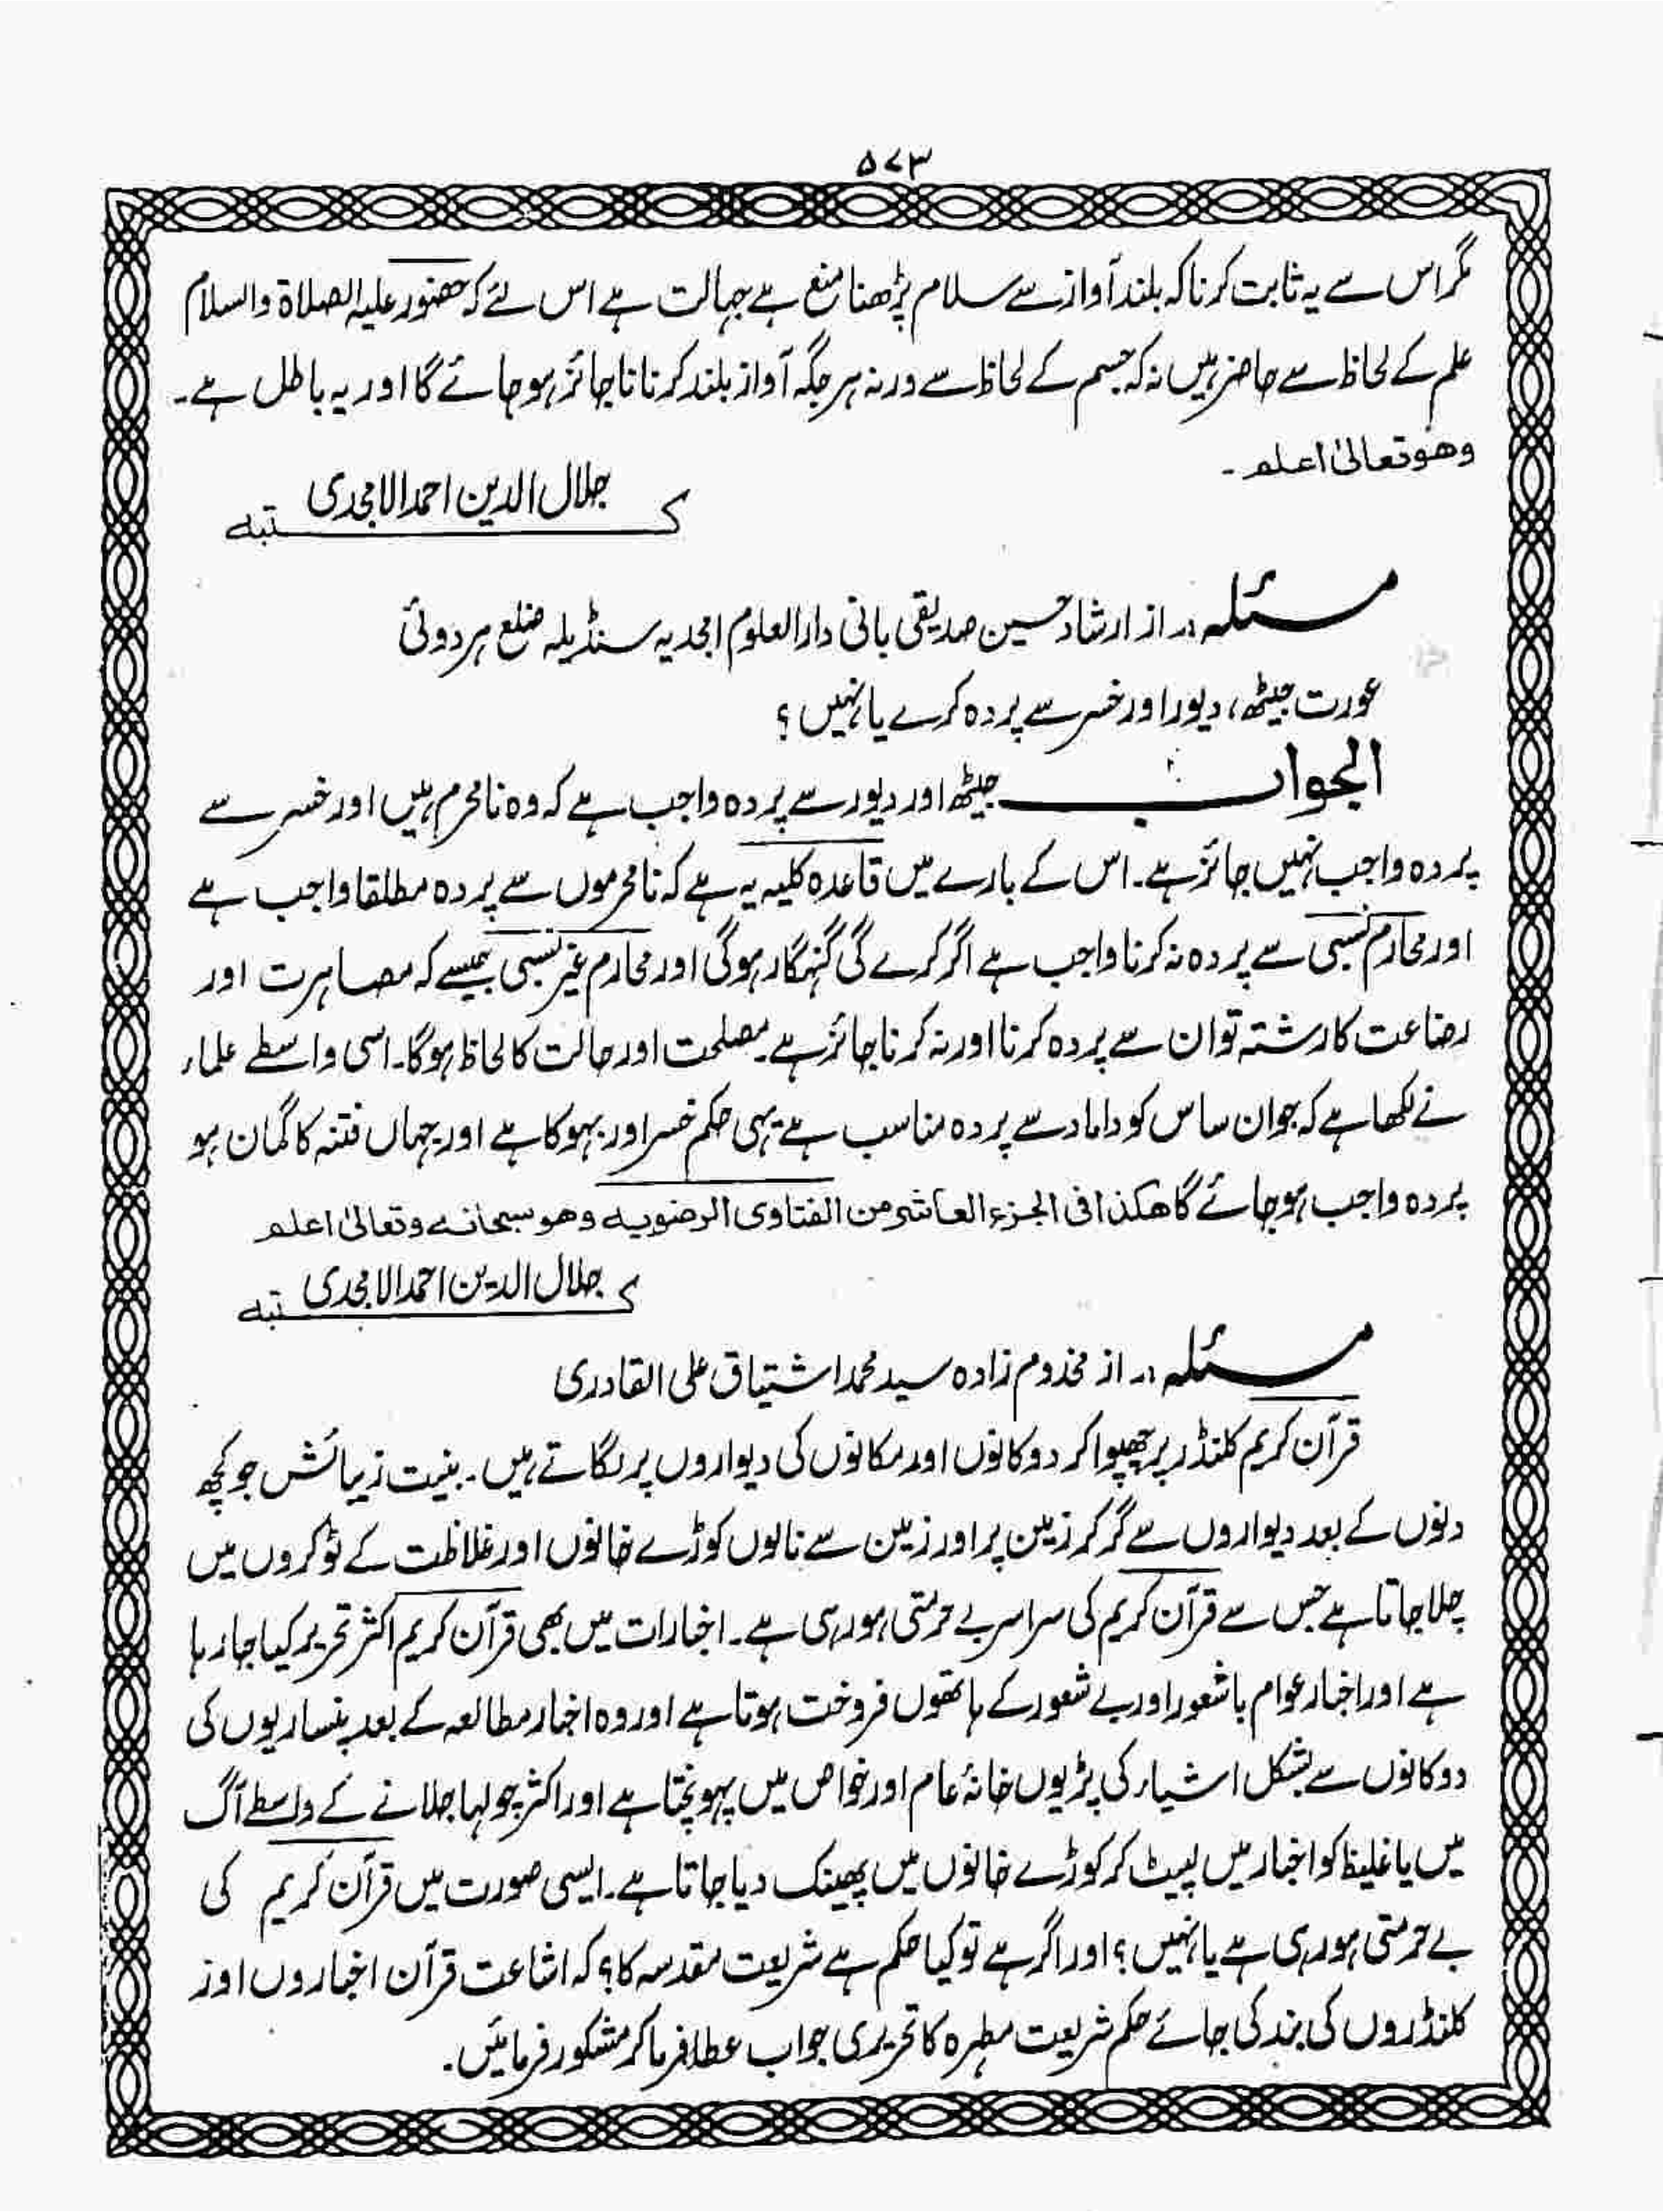 ۵۷۳
مگر اس سے یہ ثابت کرنا کہ بلند آواز سے سلام پڑھنا منع ہے جہالت ہے اس لئے کہ حضور علیہ الصلاۃ والسلام
علم کے لحاظ سے حاضر ہیں نہ کہ جسم کے لحاظ سے ورنہ ہر جگہ آواز بلند کرنا ناجائز ہو جائے گا اور یہ باطل ہے۔
وھو تعالیٰ اعلم۔
جلال الدین احمد الامجدی
کتبہ
مسئلہ:۔ از ارشاد حسین صدیقی بانی دار العلوم امجدیہ سنڈیلہ ضلع ہردوئی
عورت جیٹھ، دیور اور خسر سے پردہ کرے یا نہیں؟
الجواب جیٹھ اور دیور سے پردہ واجب ہے کہ وہ نامحرم ہیں اور خسر سے
پردہ واجب نہیں جائز ہے۔ اس کے بارے میں قاعدہ کلیہ یہ ہے کہ نامحرموں سے پردہ مطلقا واجب ہے
اور محارم نسبی سے پردہ نہ کرنا واجب ہے اگر کرے گی گنہگار ہوگی اور محارم غیر نسبی جیسے کہ مصاہرت اور
رضاعت کا رشتہ تو ان سے پردہ کرنا اور نہ کرنا جائز ہے۔ مصلحت اور حالت کا لحاظ ہوگا۔ اسی واسطے علماء
نے لکھا ہے کہ جوان ساس کو داماد سے پردہ مناسب ہے یہی حکم خسر اور بہو کا ہے اور جہاں فتنہ کا گمان ہو
پردہ واجب ہو جائے گا ھکذا فی الجزء العاشر من الفتاوی الرضویہ وھو سبحانہ وتعالیٰ اعلم
جلال الدین احمد الامجدی
کتبہ
مسئلہ:۔ از مخدوم زادہ سید محمد اشتیاق علی القادری
قرآن کریم کلنڈر پر چھپوا کر دوکانوں اور مکانوں کی دیواروں پر لگاتے ہیں۔ بنیت زیبائش جو کچھ
دنوں کے بعد دیواروں سے گر کر زمین پر اور زمین سے نالوں کوڑے خانوں اور غلاظت کے ٹوکروں میں
چلا جاتا ہے جس سے قرآن کریم کی سراسر بے حرمتی ہو رہی ہے۔ اخبارات میں بھی قرآن کریم اکثر تحریر کیا جا رہا
ہے اور اخبار عوام باشعور اور بے شعور کے ہاتھوں فروخت ہوتا ہے اور وہ اخبار مطالعہ کے بعد پنساریوں کی
دوکانوں سے بشکل اشیاء کی پڑیوں خانۂ عام اور خواص میں پہونچتا ہے اور اکثر چولہا جلانے کے واسطے آگ
میں یا غلیظ کو اخبار میں لپیٹ کر کوڑے خانوں میں پھینک دیا جاتا ہے۔ ایسی صورت میں قرآن کریم کی
بے حرمتی ہو رہی ہے یا نہیں؟ اور اگر ہے تو کیا حکم ہے شریعت مقدسہ کا؟ کہ اشاعت قرآن اخباروں اور
کلنڈروں کی بند کی جائے حکم شریعت مطہرہ کا تحریری جواب عطا فرما کر مشکور فرمائیں۔